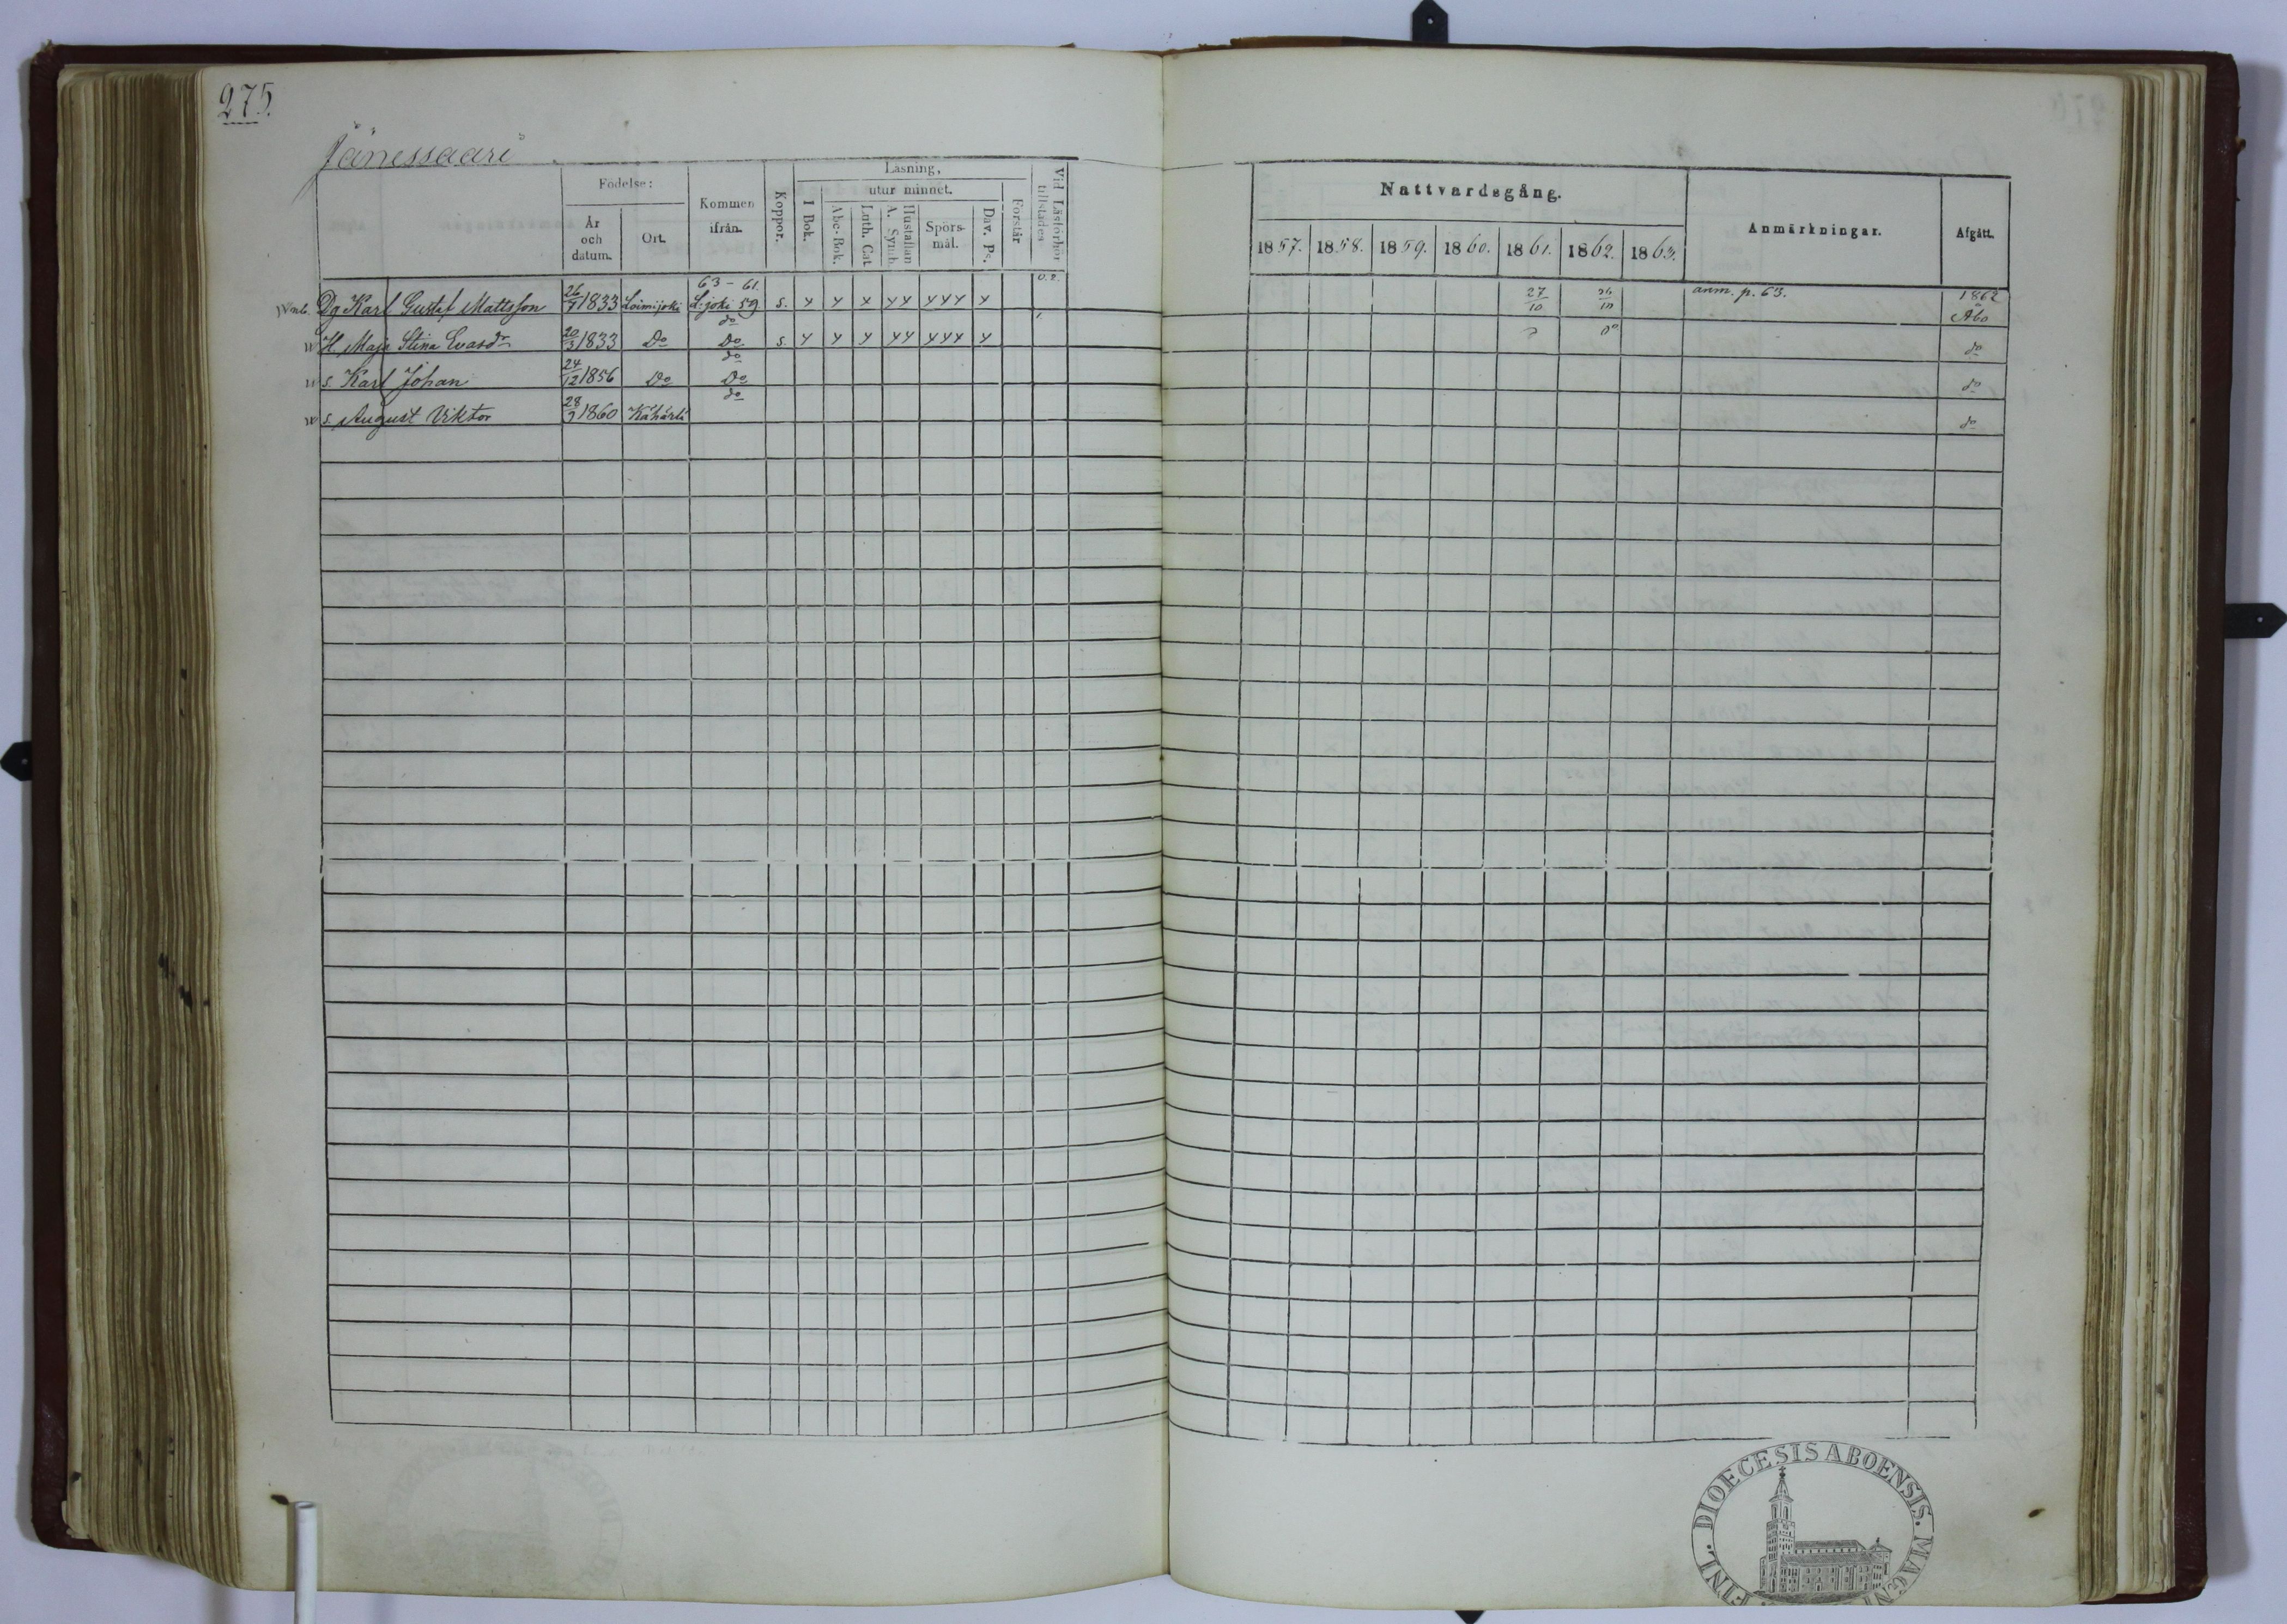 275.
Jänessaari
Födelse:
År och datum.
Ort.
Kommen ifrån.
Koppor.
Läsning,
I Bok.
utur minnet.
Abc-Bok.
Luth. Cat.
Hustaflan A. Symb.
Spörsmål.
Dav. Ps.
Förstår
Vid Läsförhör tillstädes.
Nattvardsgång.
1857. 1858. 1859. 1860. 1861. 1862. 1863.
Anmärkningar.
Afgått.
63-61. 0.2.
Dg Karl Gustaf Mattsson 26/7 1833 Loimijoki L:joki 59 s. 27/10 26/10 anm. p. 63. 1862 Åbo
do
H. Maja Stina Evasdr 20/3 1833 Do Do s. do do
do
s. Karl Johan 24/12 1856 Do Do do
do
s. August Viktor 28/9 1860 Kähärlä do
DIOECESIS ABOENSIS. MAGNI
FINL.